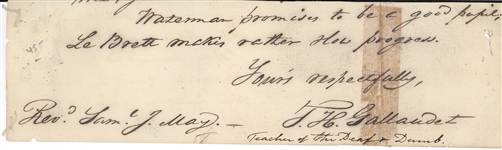 Waterman promises to be a good pupil
Le Brett makes rather slow progress.
Yours respectfully,
Rev.d Sam.l J. May. —
T. H. Gallaudet
Teacher of the Deaf & Dumb.